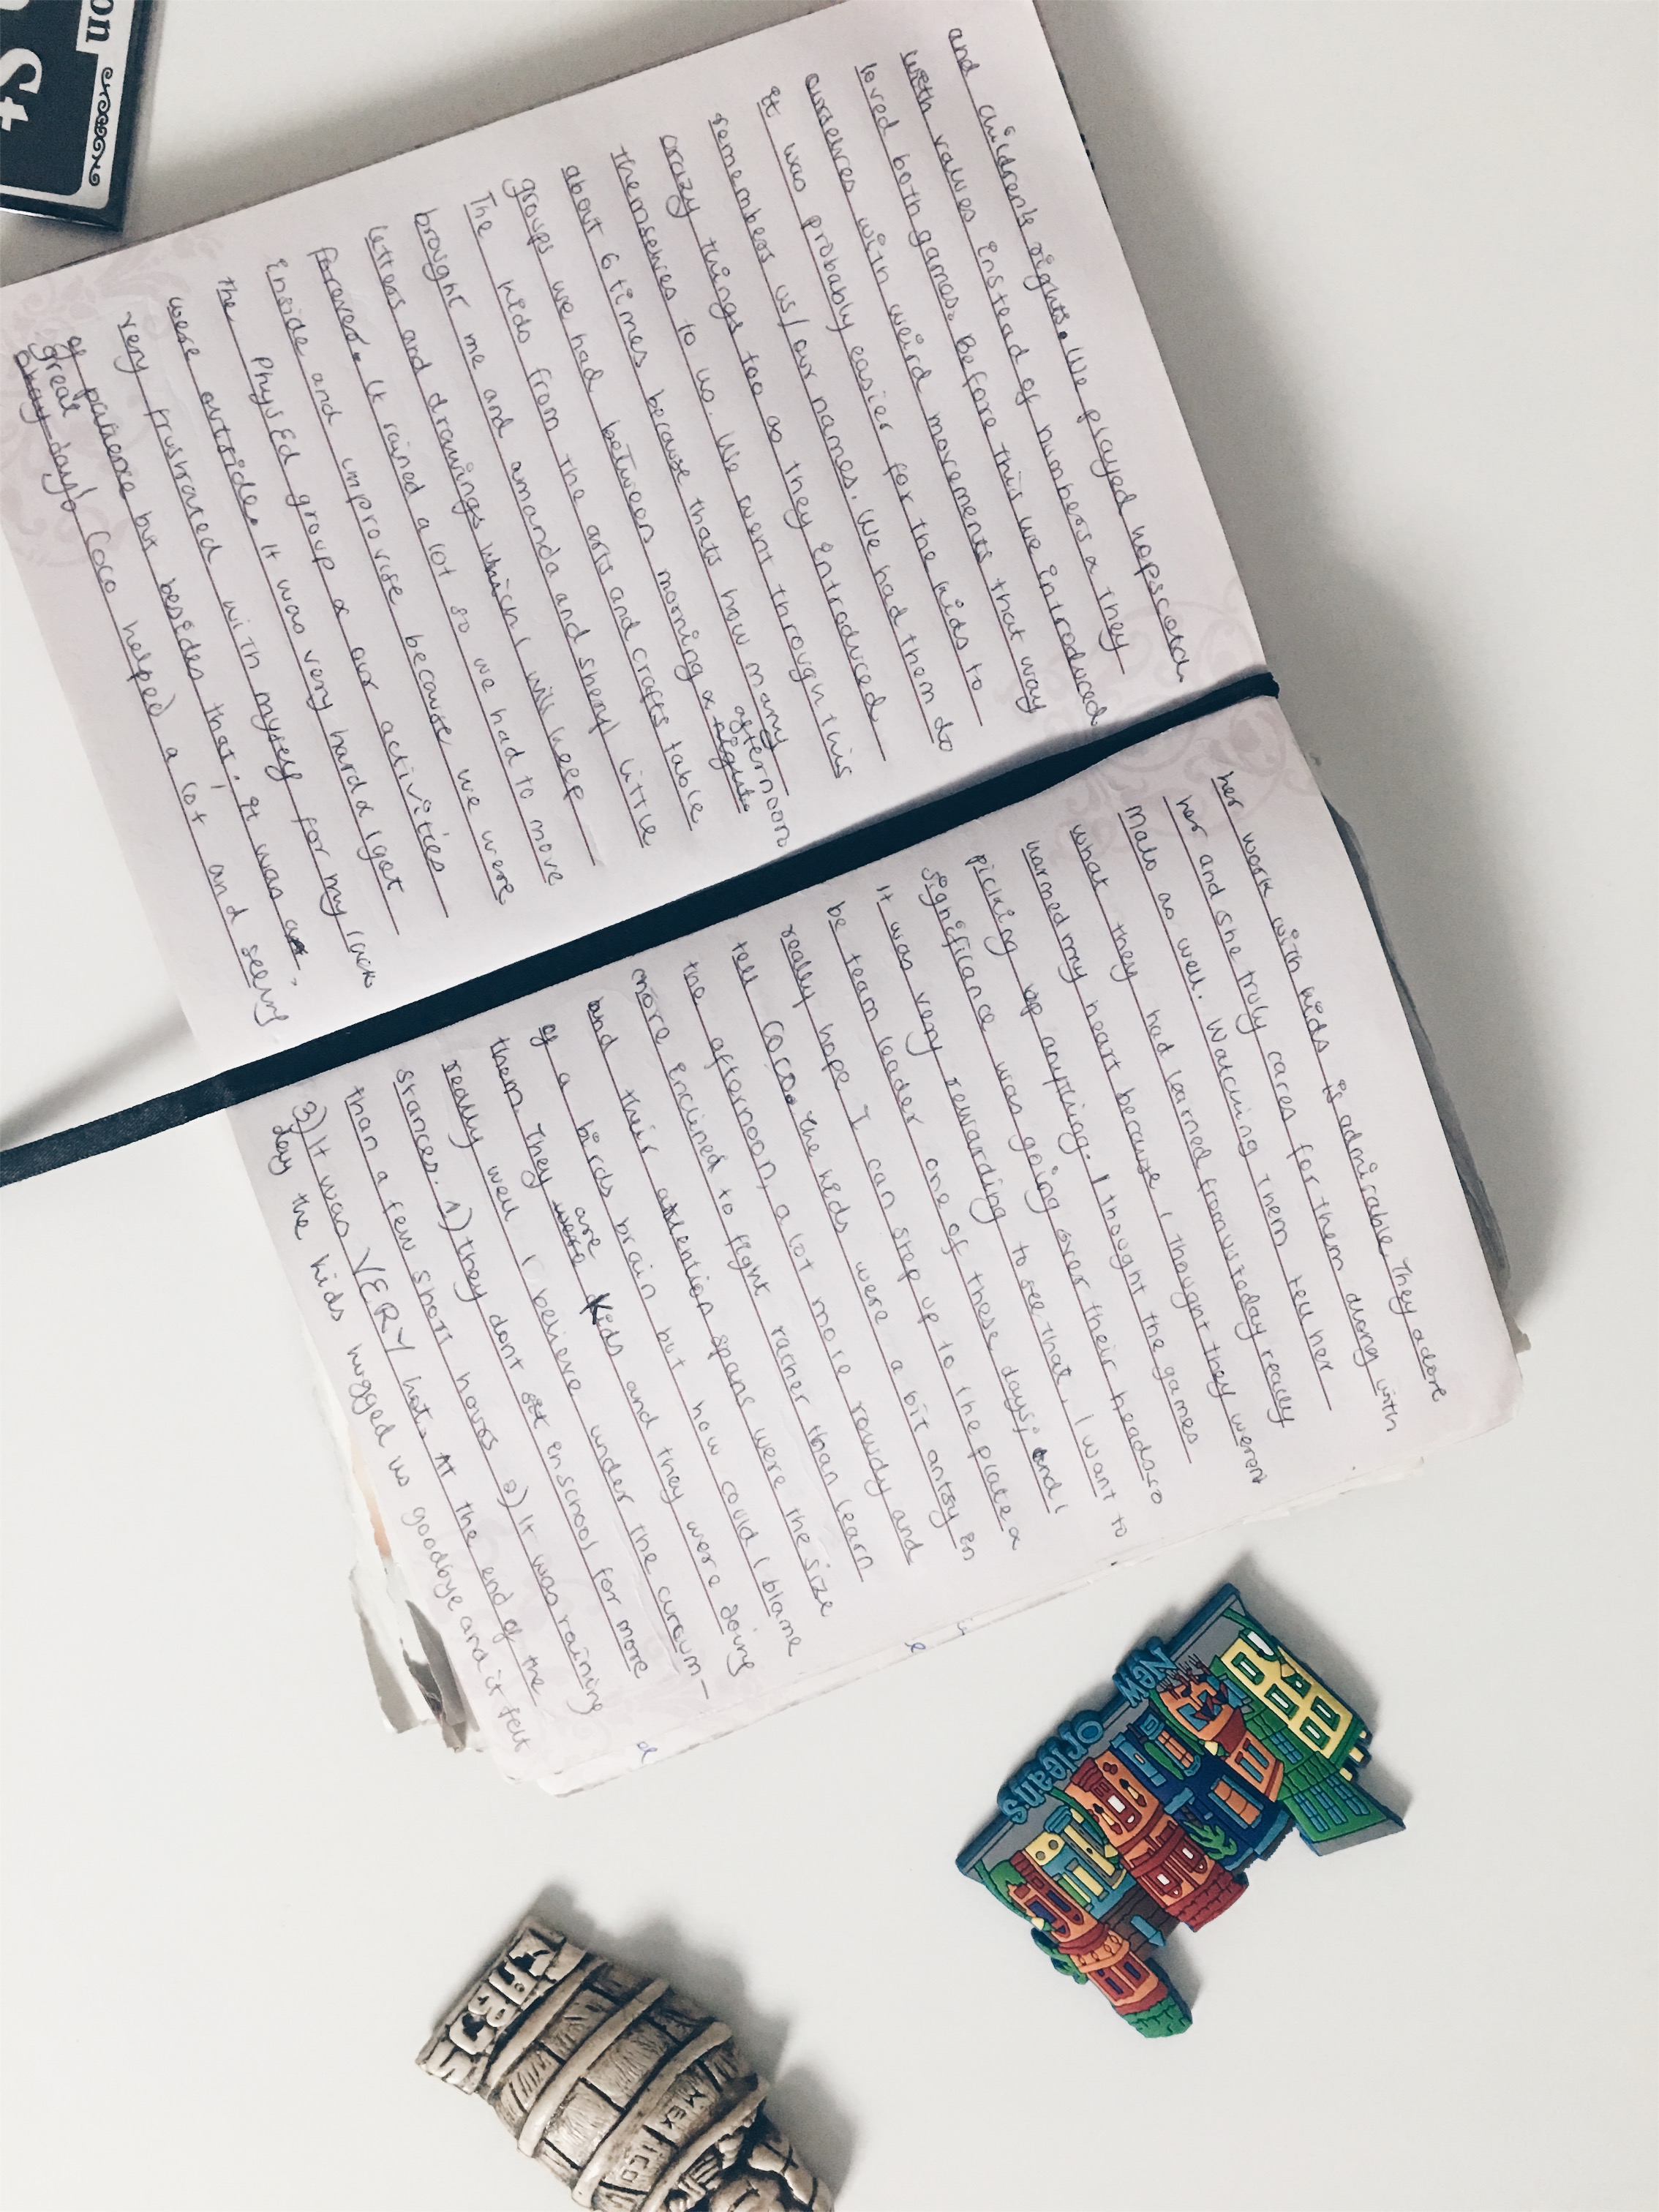 and children's rights. We played hopscotch
with values instead of numbers & they
loved both games. Before this we introduced
ourselves with weird movements that way
it was probably easier for the kids to
remembers us/our names. We had them do
crazy things too as they introduced
themselves to us. We went through this
about 6 times because thats how many
groups we had between morning & night. afternoon
The kids from the arts and crafts table
brought me and amanda and sheryl little
letters and drawings which I will keep
forever. It rained a lot so we had to move
inside and improvise because we were
the Phys Ed group & our activities
were outside. It was very hard & I got
very frustrated with myself for my lack
of patience but besides that, it was a
great day! Coco helped a lot and seeing
her work with kids is admirable. They adore
her and she truly cares for them along with
Malo as well. Watching them tell her
what they had learned from us today really
warmed my heart because I thought they werent
picking up anything. I thought the games
significance was going over their heads so
it was very rewarding to see that. I want to
be team leader one of these days, and I
really hope I can step up to the plate &
tell Coco. The kids were a bit antsy in
the afternoon, a lot more rowdy and
more inclined to fight rather than learn
and their attention spans were the size
of a birds brain but how could I blame
them. They were are kids and they were doing
really well I believe under the circum-
stances. 1) they dont sit in school for more
than a few short hours 2) It was raining
3) It was VERY hot. At the end of the
day the kids hugged us goodbye and it felt
on
St
New
Orleans
CARBO'S
MEXICO